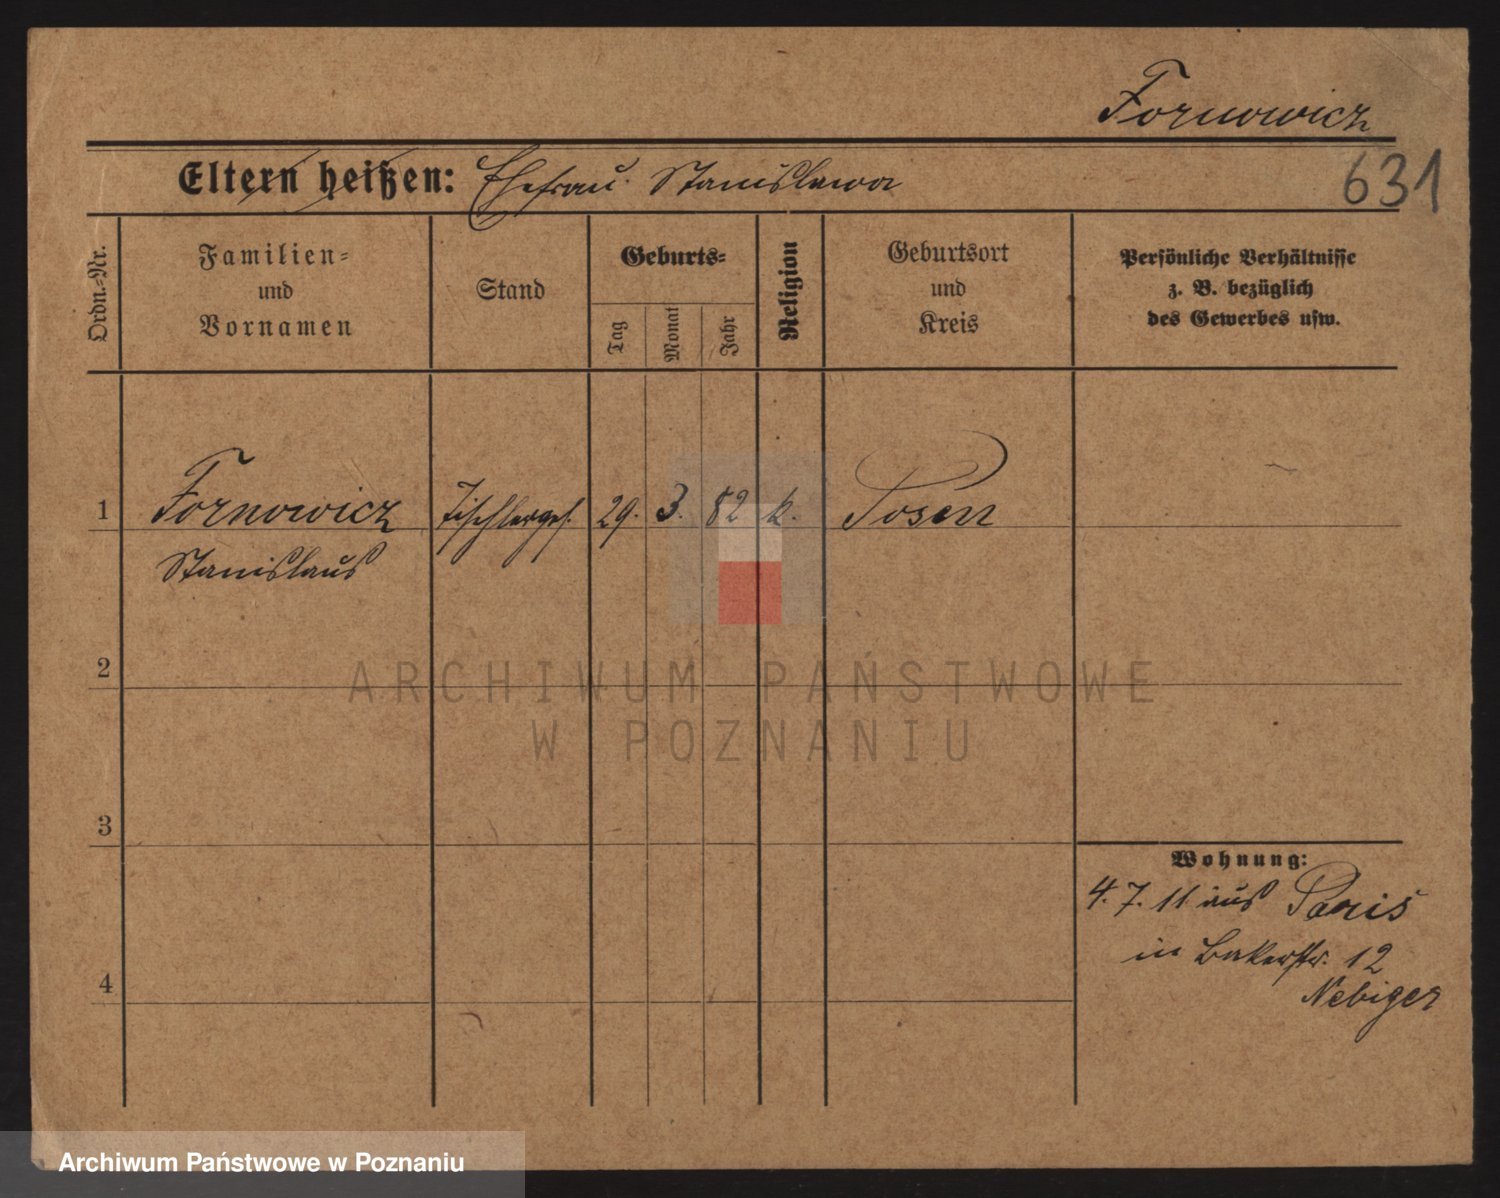 Fornowicz
Eltern heißen: Ehefrau Stanislawa
631
Ordn.-Nr.
Familien-
und
Vornamen
Stand
Geburts-
Tag
Monat
Jahr
Religion
Geburtsort
und
Kreis
Persönliche Verhältnisse
z. B. bezüglich
des Gewerbes usw.
1 Fornowicz Tischlerges. 29. 3. 82 k. Posen
Stanislaus
2
ARCHIWUM PAŃSTWOWE
W POZNANIU
3
Wohnung:
4. 7. 11. aus Paris
in Bukerstr. 12
4
Nebiger
Archiwum Państwowe w Poznaniu